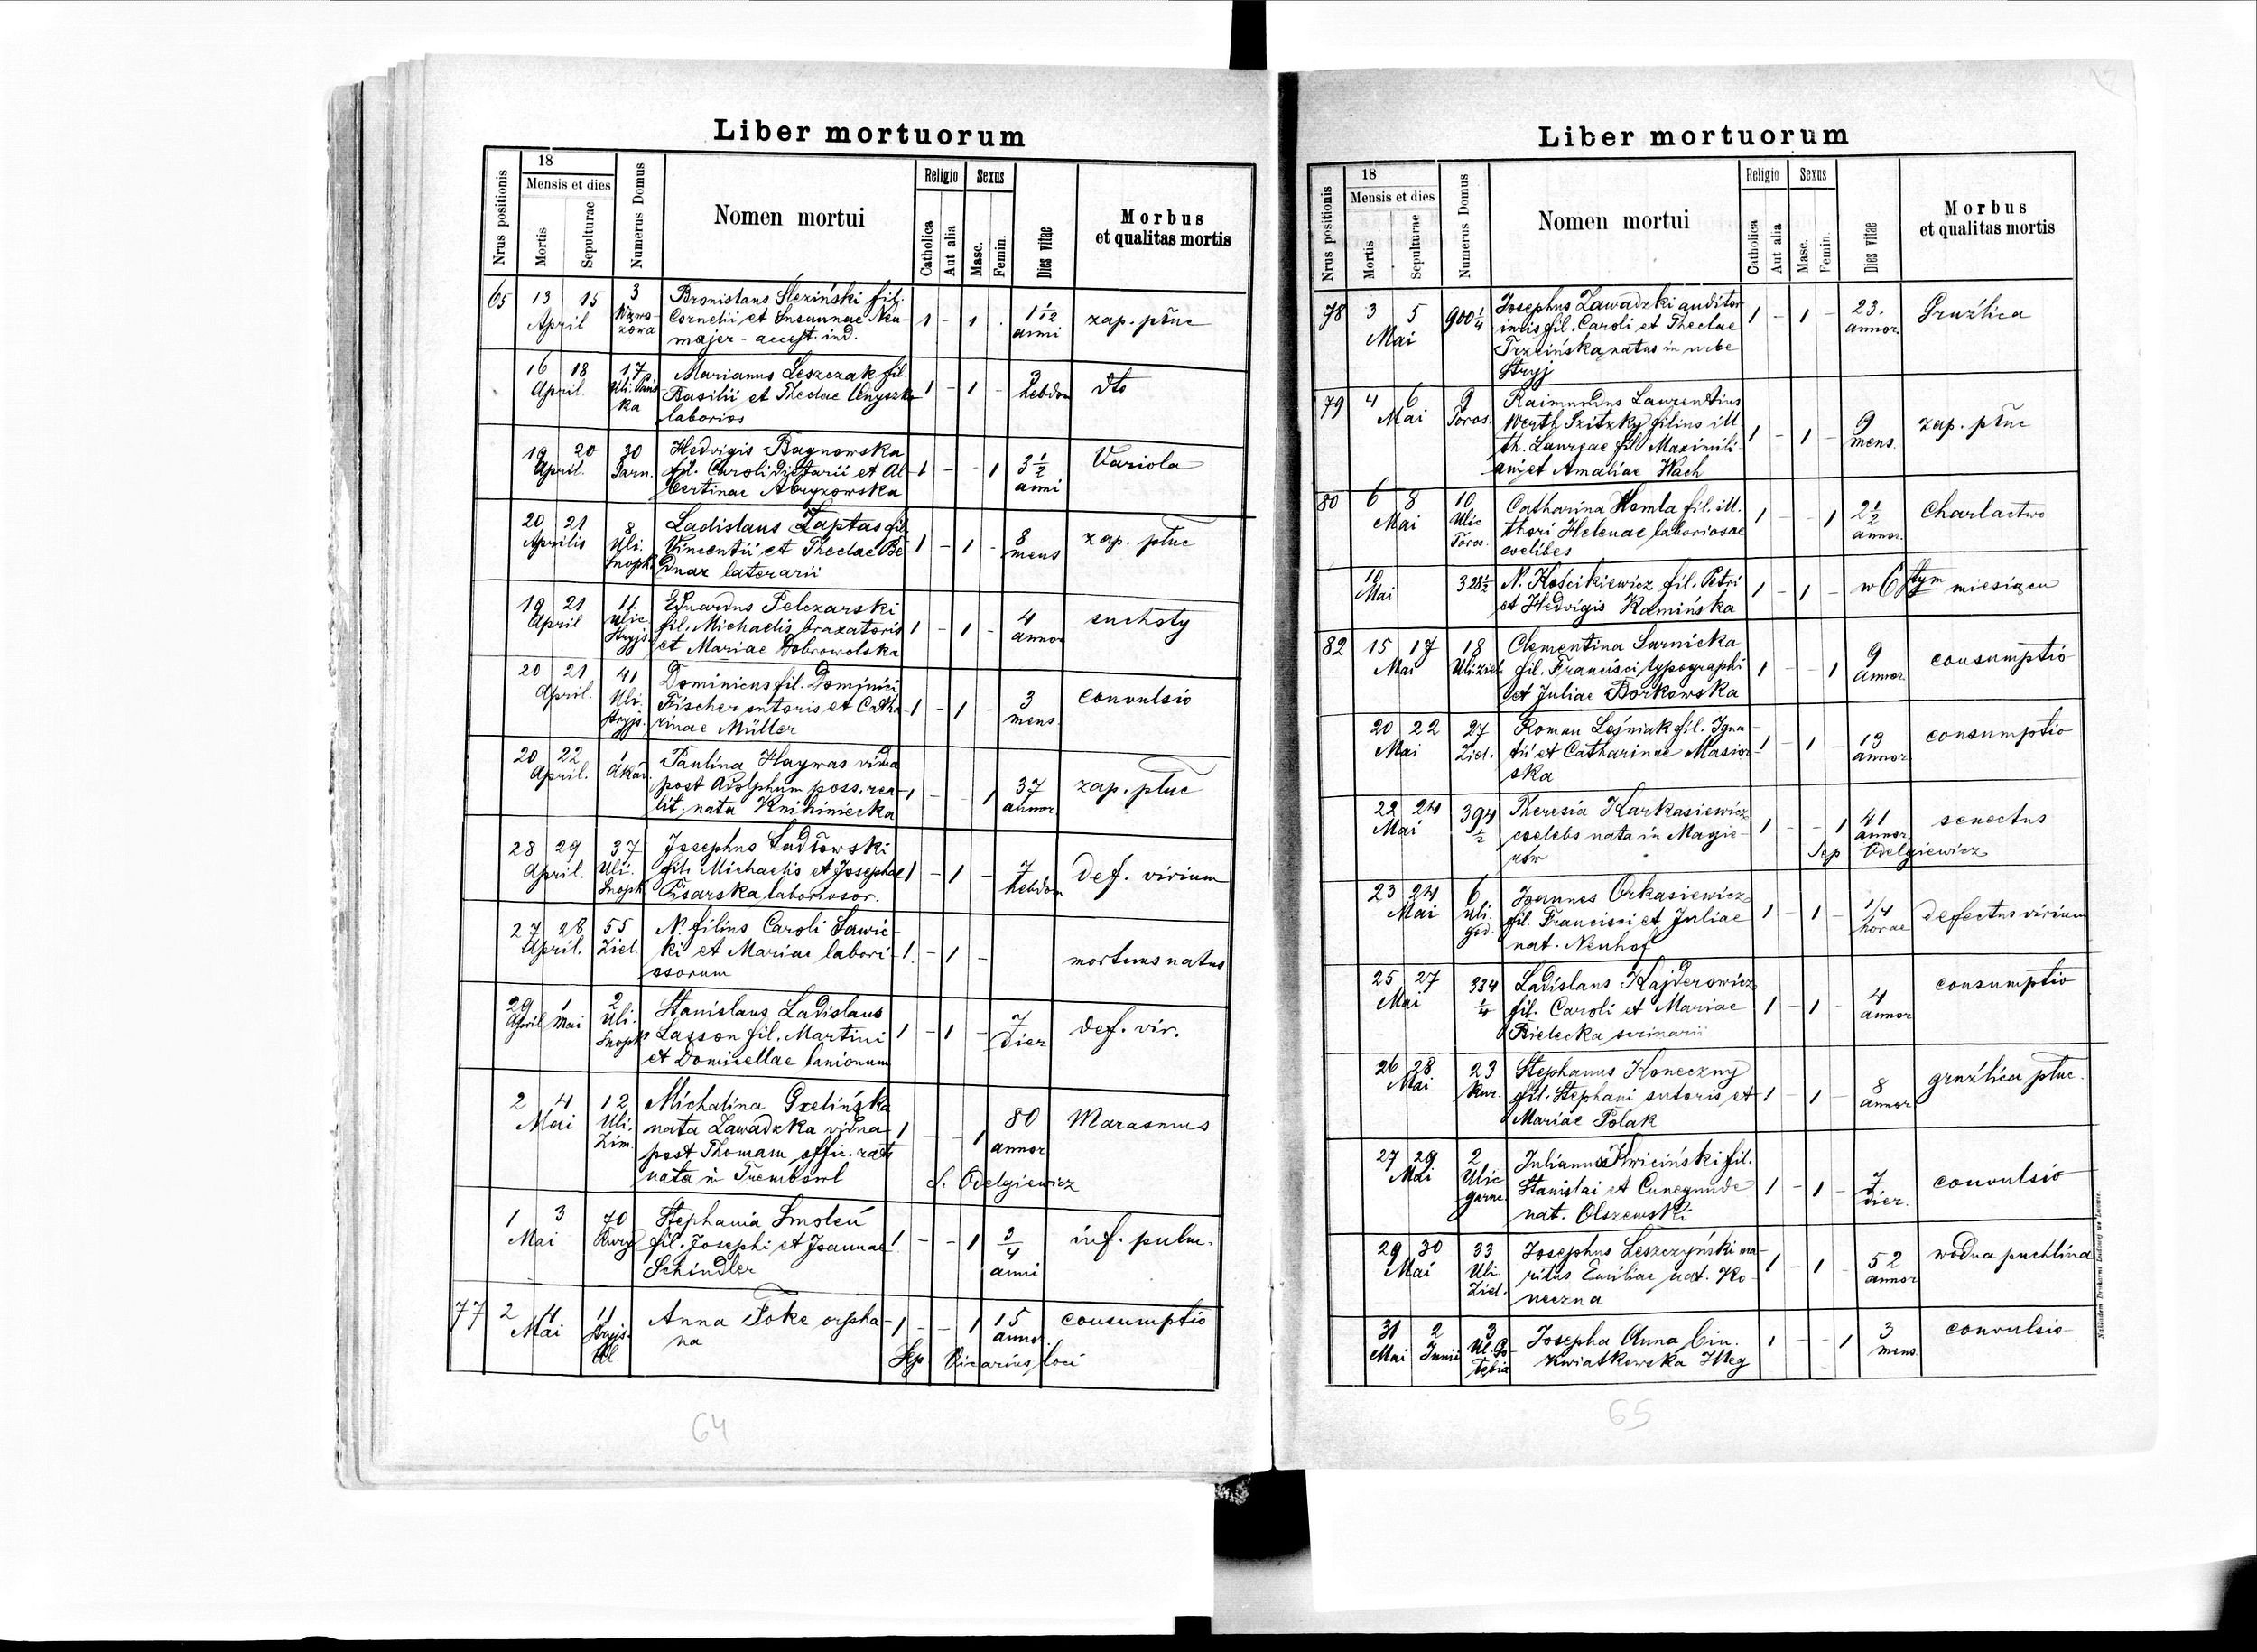 Liber mortuorum
Nrus positionis
18
Mensis et dies
Mortis
Sepulturae
Numerus Domus
Nomen mortui
Religio
Catholica
Aut alia
Sexus
Masc.
Femin.
Dies vitae
Morbus
et qualitas mortis
65 13 15 3 Bronislaus Śleziński fil.
April Cornelii et Susannae Neu- 1 - 1 . 1 1/2 zap. płuc
zowa majer - accest. ind. anni
16 18 17 Marianus Leszczak fil.
April. Basilii et Theclae 1 - 1 - 3 dto
ka laborios hebdom
19 20 30 Hedvigis Bagnowska
April. Garn. fil. Caroli dietarii et Al- 1 - - 1 3 1/2 Variola
bertinae Abryzowska anni
20 21 8 Ladislaus Łaptas fil.
Aprilis Uli. Vincentii et Theclae Be- 1 - 1 - 8 zap. płuc
Snopk. dnar laterarii mens
19 21 11. Eduardus Pelczarski
April Ulic. fil. Michaelis braxatoris 1 - 1 - 4 suchoty
Stryjs. et Mariae Dobrowolska annor
20 21 41 Dominicus fil. Dominici
April. Uli. Fischer sutoris et Catha- 1 - 1 - 3 convulsio
Stryjs. rinae Müller mens
20 22 1 Paulina Haywas vidua
April. Akad. post Adolphum poss. rea- 1 - 1 37 zap. płuc
lit. nata Knihiniecka annor
28 29 37 Josephus Sudłowski
April. Uli. fil. Michaelis et Josephae 1 - 1 - 7 def. virium
Snopk Pisarska laboriosor. hebdom
27 28 55 N. filius Caroli Sawic-
April. Ziel. ki et Mariae labori- 1. - 1 - mortuus natus
osorum
29 1 2 Stanislaus Ladislaus
April Mai Uli. Lasson fil. Martini 1 - 1 - 7 def. vir.
Snopk et Domicellae lanionum dier
2 4 12 Michalina Grelińska
Mai Uli. nata Zawadzka vidua 1 - 1 80 Marasmus
Zim. post Thomam offic. rat annor
nata in Trembowl S. Odelgiewicz
1 3 70 Stephania Smoleń
Mai Kurz fil. Josephi et Joannae 1 - - 1 3/4 inf. pulm.
Schindler anni
77 2 4 11 Anna Foke orpha- 1 - - 1 15 consumptio
Mai Stryjs. na annor.
Ul. Sep Vicarius loci
64
Liber mortuorum
Nrus positionis
18
Mensis et dies
Mortis
Sepulturae
Numerus Domus
Nomen mortui
Religio
Catholica
Aut alia
Sexus
Masc.
Femin.
Dies vitae
Morbus
et qualitas mortis
78 3 5 900 1/4 Josephus Zawadzki auditor
Mai iuris fil. Caroli et Theclae 1 - 1 - 23. Gruźlica
Trzcińska, natus in urbe annor.
Stryj
79 4 6 9 Raimundus Laurentius
Mai Toros. Werth filius ill. 9 zap. płuc
th. Laurae fil Maximili- 1 - 1 - mens.
ani et Amaliae Wach
80 6 8 10 Catharina Homla fil. ill.
Mai Ulic thori Helenae laboriosae 1 - - 1 2 1/2 Charlactwo
Toros. coelibes annor.
10 328 1/2 N. Kościkiewicz fil. Petri
Mai et Hedvigis Kamińska 1 - 1 - w 6stym miesiącu
82 15 17 18 Clementina Sarnicka
Mai Uli ziel. fil. Francisci typographi 1 - - 1 9 consumptio
et Juliae Borkowska annor.
20 22 27 Roman Leśniak fil. Igna-
Mai Ziel. tii et Catharinae Masior- 1 - 1 - 19 consumptio
ska annor
22 24 394 1/2 Theresia Karkasiewicz
Mai coelebs nata in Magie- 1 - - 1 41 senectus
rów annor
Sep Odelgiewicz
23 24 6 Joannes Orkasiewicz
Mai Uli. fil. Francisci et Juliae 1 - 1 - 1/4 defectus virium
god. nat. Neuhof horae
25 27 334 1/4 Ladislaus Kajderowicz
Mai fil. Caroli et Mariae 1 - 1 - 4 consumptio
Bielecka scrinarii annor
26 28 23 Stephanus Koneczny
Mai Kur. fil. Stephani sutoris et 1 - 1 - 8 gruźlica płuc.
Mariae Polak annor
27 29 2 Julianus Kwiciński fil.
Mai Ulic Stanislai et Cunegunde 1 - 1 - 7 convulsio
Garnc. nat. Olszewski dier.
29 30 33 Josephus Leszczyński ma-
Mai Uli. ritus Emiliae nat. Ko- 1 - 1 - 52 wodna puchlina
Ziel. neczna annor
31 2 3 Josepha Anna bin.
Mai Junii Ul. Go- Kwiatkowska Illeg 1 - - 1 3 convulsio
łębia mens
Nakładem Drukarni Ludowej we Lwowie.
65